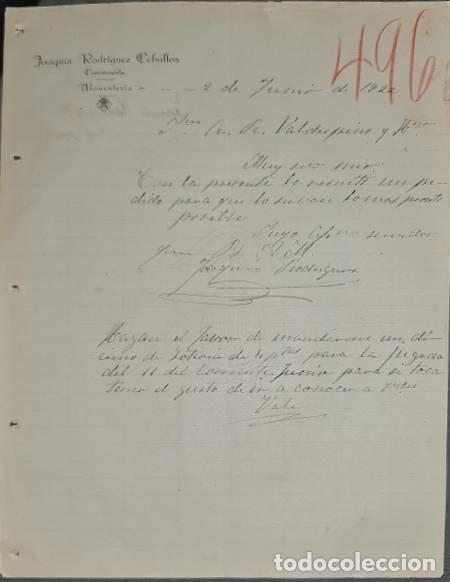 Joaquín Rodríguez Ceballos
Monesterio
496
2 de Junio de 1922
Sres. A. R. Valdespino y Hno
Muy sres mios
Con la presente le remito un pe-
dido para que lo sirvan lo mas pronto
posible
Suyo afmo servidor
Joaquin Rodriguez
Hagan el favor de mandarme un dé-
cimo de loteria de 4 ptas para la jugada
del 11 del corriente Junio para si toca
tener el gusto de ir a conocer a Vdes
Vale
todocoleccion